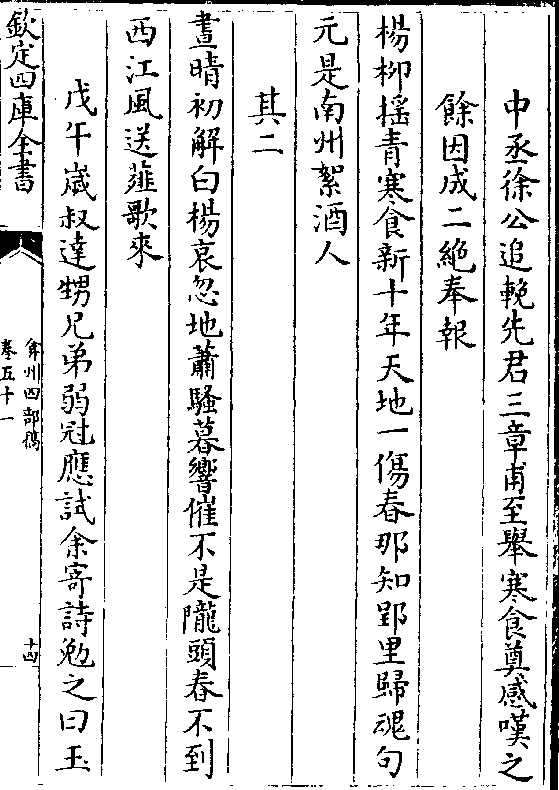 中丞徐公追輓先君三章甫至舉寒食奠感嘆之
餘因成二絶奉報
楊柳揺青寒食新十年天地一傷春那知郢里歸魂句
元是南州絮酒人
其二
晝晴初解白楊哀忽地蕭騷暮響催不是隴頭春不到
西江風送薤歌來
戊午嵗叔達甥兄弟弱冠應試余寄詩勉之曰玉
欽定四庫全書
弇州四部稿
卷五十一
十四